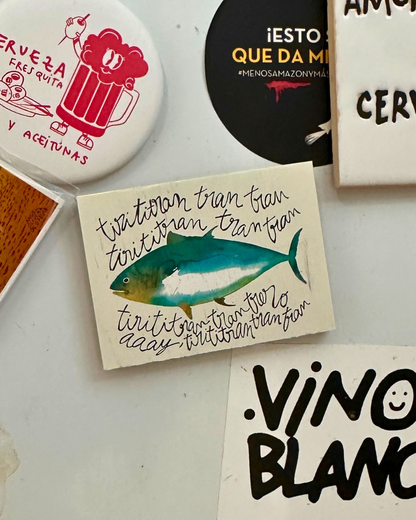 ERVEZA
FRESQUITA
Y ACEITUNAS
¡ESTO
QUE DA MI
#MENOSAMAZONYMÁS
AMO
CERV
tirititran tran tran
tirititran tran tran
tirititrantrantrero
aaay, tirititrantrantran
.VINO
BLANC